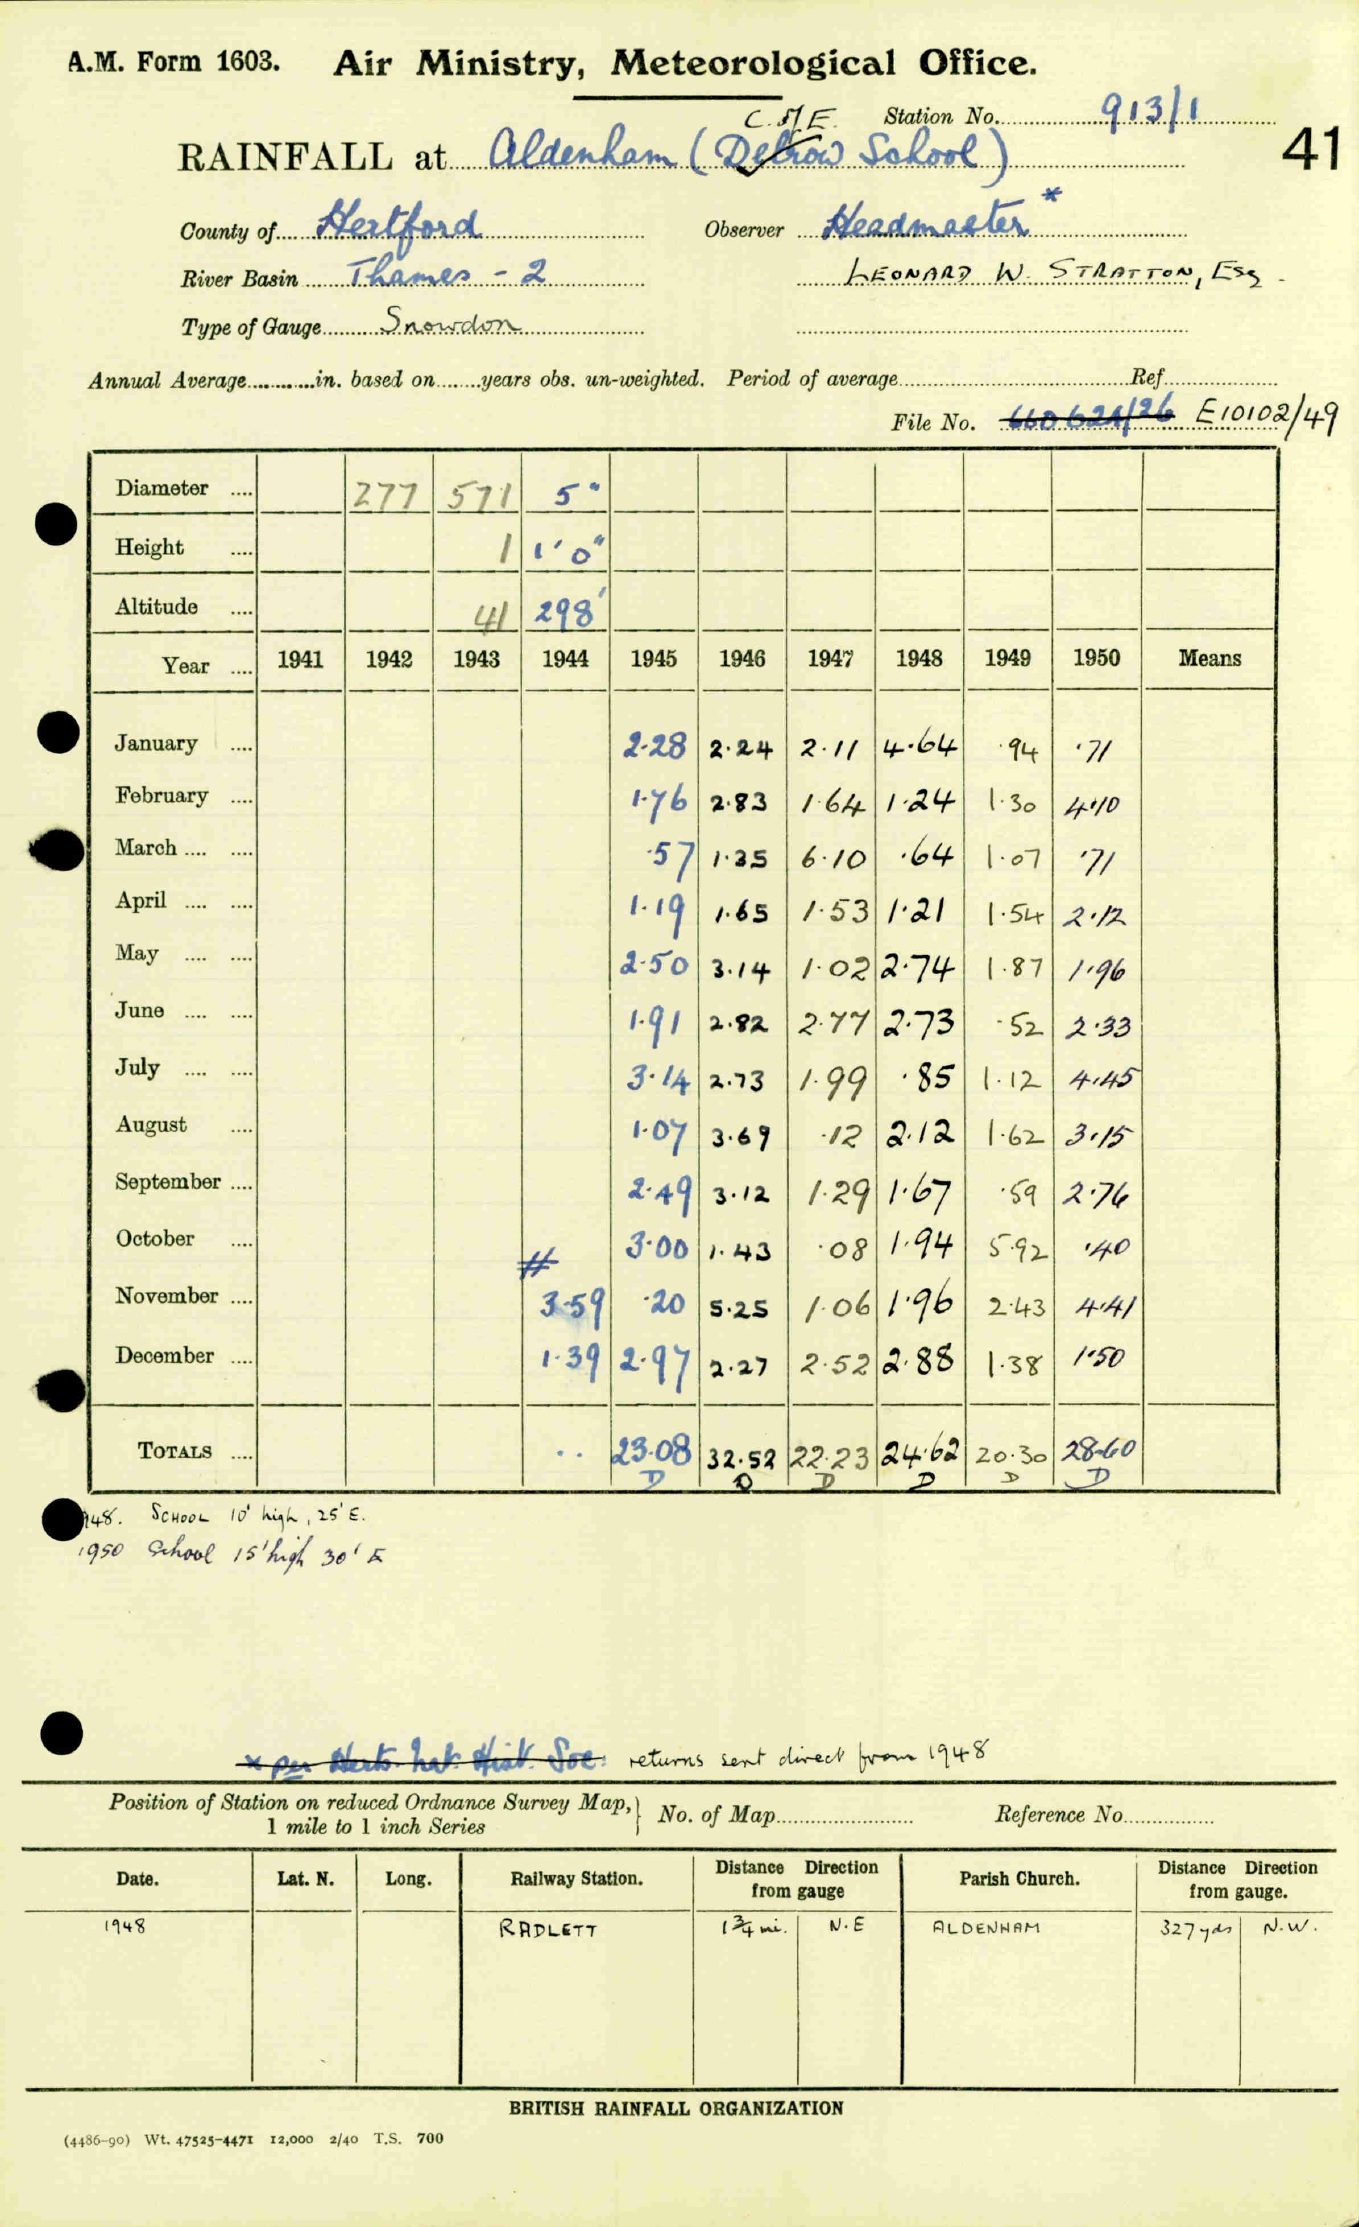 A.M. Form 1603. Air Ministry, Meteorological Office.
Station No. 913/1
41
C. of E.
RAINFALL at Aldenham (Delrow School)
County of Hertford Observer Headmaster *
River Basin Thames - 2 LEONARD W. STRATTON, Esq.
Type of Gauge Snowdon
Annual Average in. based on years obs. un-weighted. Period of average Ref
File No. E10102/49
Diameter 277 571 5"
Height 1 1' 0"
Altitude 41 298'
Year 1941 1942 1943 1944 1945 1946 1947 1948 1949 1950 Means
January 2.28 2.24 2.11 4.64 .94 .71
February 1.76 2.83 1.64 1.24 1.30 4.10
March .57 1.35 6.10 .64 1.07 .71
April 1.19 1.65 1.53 1.21 1.54 2.12
May 2.50 3.14 1.02 2.74 1.87 1.96
June 1.91 2.82 2.77 2.73 .52 2.33
July 3.14 2.73 1.99 .85 1.12 4.45
August 1.07 3.69 .12 2.12 1.62 3.15
September 2.49 3.12 1.29 1.67 .59 2.76
October 3.00 1.43 .08 1.94 5.92 .40
#
November 3.59 .20 5.25 1.06 1.96 2.43 4.41
December 1.39 2.97 2.27 2.52 2.88 1.38 1.50
TOTALS .. 23.08 32.52 22.23 24.62 20.30 28.60
D D D D D D
948. SCHOOL 10' high, 25' E.
1950 School 15' high 30' E
* per Herts. Nat. Hist. Soc. returns sent direct from 1948
Position of Station on reduced Ordnance Survey Map, 1 mile to 1 inch Series } No. of Map Reference No.
Date. Lat. N. Long. Railway Station. Distance Direction from gauge Parish Church. Distance Direction from gauge.
1948 RADLETT 1 3/4 mi. N.E ALDENHAM 327 yds N.W.
BRITISH RAINFALL ORGANIZATION
(4486-90) Wt. 47525-4471 12,000 2/40 T.S. 700